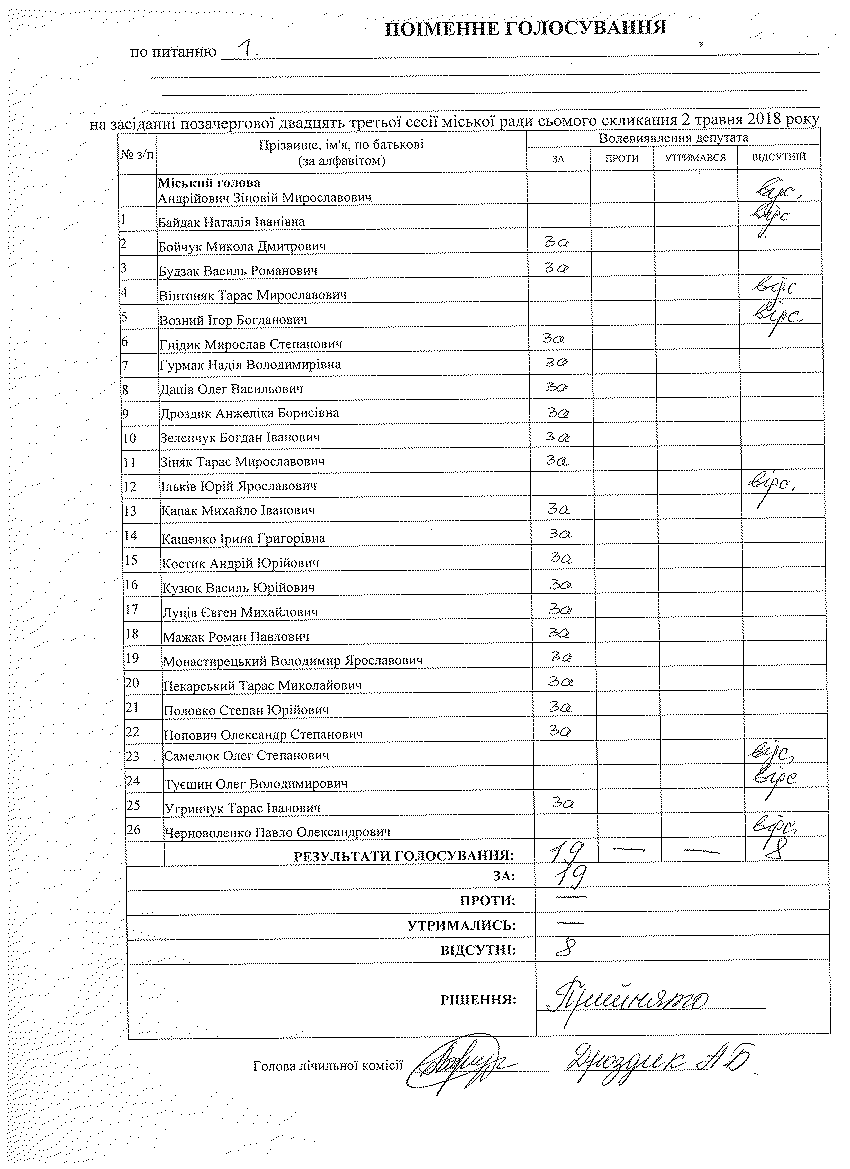 ПОІМЕННЕ ГОЛОСУВАННЯ
по питанню 1.
на засіданні позачергової двадцять третьої сесії міської ради сьомого скликання 2 травня 2018 року
№ з/п Прізвище, ім'я, по батькові (за алфавітом) Волевиявлення депутата
ЗА ПРОТИ УТРИМАВСЯ ВІДСУТНІЙ
Міський голова
Андрійович Зіновій Мирославович відс.
1 Байдак Наталія Іванівна відс
2 Бойчук Микола Дмитрович за
3 Будзак Василь Романович за
4 Вінтоняк Тарас Мирославович відс
5 Возний Ігор Богданович відс.
6 Гнідик Мирослав Степанович за
7 Гурмак Надія Володимирівна за
8 Даців Олег Васильович за
9 Дроздик Анжеліка Борисівна за
10 Зеленчук Богдан Іванович за
11 Зіняк Тарас Мирославович за
12 Ільків Юрій Ярославович відс.
13 Капак Михайло Іванович за
14 Кащенко Ірина Григорівна за
15 Костик Андрій Юрійович за
16 Кузюк Василь Юрійович за
17 Луців Євген Михайлович за
18 Мажак Роман Павлович за
19 Монастирецький Володимир Ярославович за
20 Пекарський Тарас Миколайович за
21 Половко Степан Юрійович за
22 Попович Олександр Степанович за
23 Самелюк Олег Степанович відс,
24 Туєшин Олег Володимирович відс
25 Угринчук Тарас Іванович за
26 Черноволенко Павло Олександрович відс.
РЕЗУЛЬТАТИ ГОЛОСУВАННЯ: 19 — — 8
ЗА: 19
ПРОТИ: —
УТРИМАЛИСЬ: —
ВІДСУТНІ: 8
РІШЕННЯ: Прийнято
Голова лічильної комісії Дроздик А Б